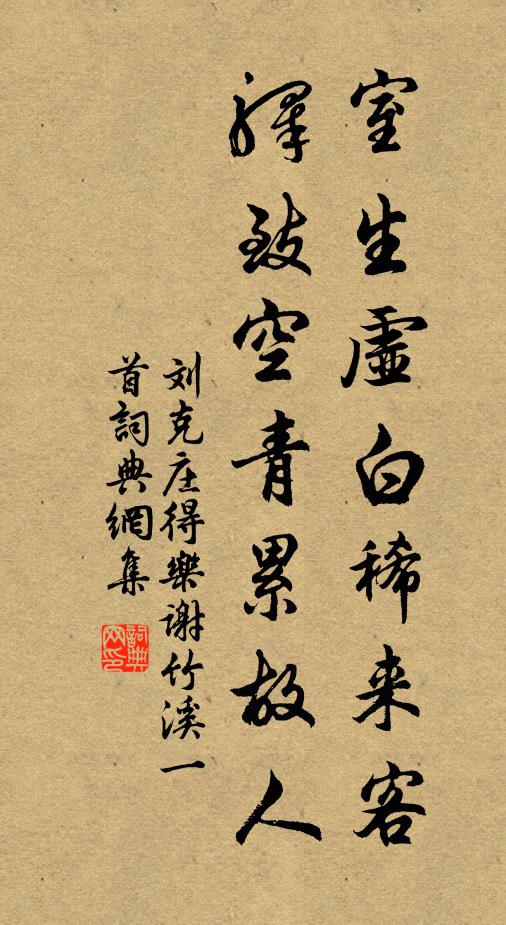 室生虛白稀来客
驛致空青累故人
刘克庄得樂谢竹溪一
首詞典網集
詞典网印